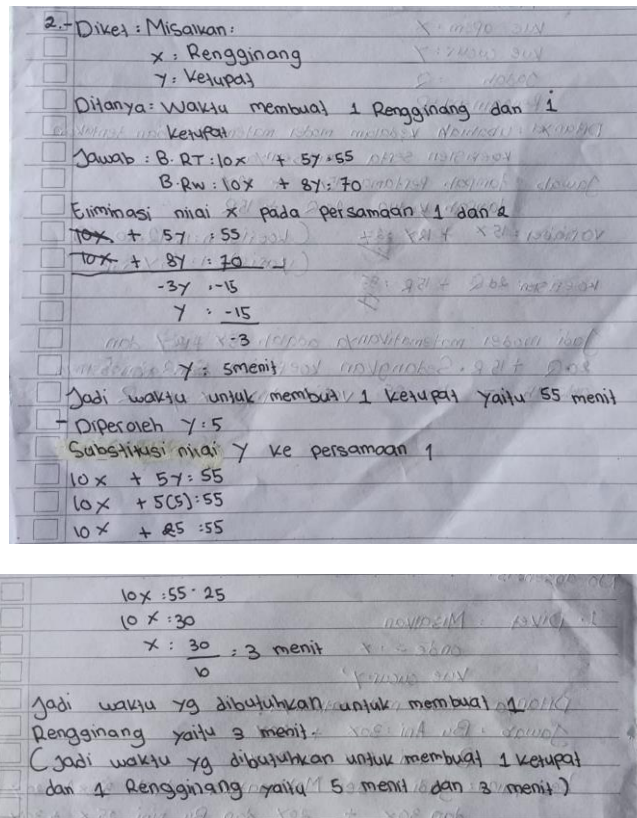 2.- Diket : Misalkan :
x : Rengginang
y : Ketupat
Ditanya : Waktu membuat 1 Rengginang dan 1
ketupat
Jawab : B. RT : 10x + 5y = 55
B. Rw : 10x + 8y = 70
Eliminasi nilai x pada persamaan 1 dan 2
10x + 5y = 55
10x + 8y = 70 -
-3y = -15
y = -15
-3
y = 5menit
Jadi waktu untuk membuat 1 ketupat yaitu 55 menit
- Diperoleh y = 5
Substitusi nilai y ke persamaan 1
10x + 5y = 55
10x + 5(5) = 55
10x + 25 = 55
10x = 55 - 25
10x = 30
x = 30 = 3 menit
10
Jadi waktu yg dibutuhkan untuk membuat 1
Rengginang yaitu 3 menit.
(Jadi waktu yg dibutuhkan untuk membuat 1 ketupat
dan 1 Rengginang yaitu 5 menit dan 3 menit)